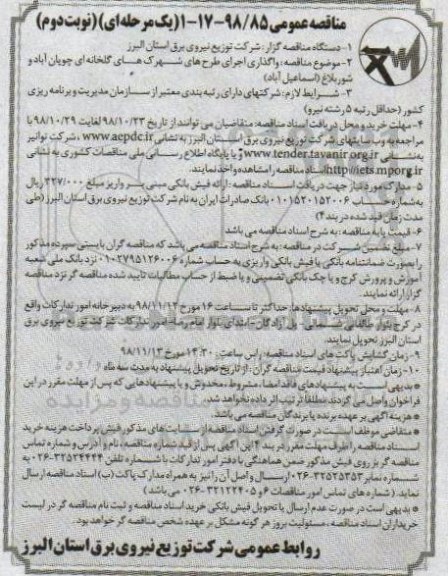 مناقصه عمومی ۹۸/۸۵-۱۷-۱ (یک مرحله ای) (نوبت دوم)
۱- دستگاه مناقصه گزار: شرکت توزیع نیروی برق استان البرز
۲- موضوع مناقصه: واگذاری اجرای طرح های شهرک های گلخانه ای چوپان آباد و
شوربلاغ (اسماعیل آباد)
۳- شرایط لازم: شرکتهای دارای رتبه بندی معتبر از سازمان مدیریت و برنامه ریزی
کشور (حداقل رتبه ۵ رشته نیرو)
۴- مهلت خرید و محل دریافت اسناد مناقصه: متقاضیان می توانند از تاریخ ۹۸/۱۰/۲۳ لغایت ۹۸/۱۰/۲۹ با
مراجعه به وب سایتهای شرکت توزیع نیروی برق استان البرز به نشانی www.aepdc.ir، شرکت توانیر
به نشانی www.tender.tavanir.org.ir و یا پایگاه اطلاع رسانی ملی مناقصات کشوری به نشانی
http://iets.mporg.ir اسناد مناقصه را مشاهده و اخذ نمایند.
۵- مدارک مورد نیاز جهت دریافت اسناد مناقصه: ارائه فیش بانکی مبنی بر واریز مبلغ ۳۲۷/۰۰۰ ریال
به شماره حساب ۰۱۰۱۵۲۰۱۵۲۰۰۶ بانک صادرات ایران به نام شرکت توزیع نیروی برق استان البرز (طی
مدت زمان قید شده در بند ۴)
۶- قیمت پایه مناقصه: به شرح اسناد مناقصه می باشد
۷- مبلغ تضمین شرکت در مناقصه: به شرح اسناد مناقصه می باشد که مناقصه گران بایستی سپرده مذکور
را بصورت ضمانتنامه بانکی یا فیش بانکی واریزی به حساب شماره ۰۱۰۲۷۹۵۱۲۶۰۰۶ نزد بانک ملی شعبه
آموزش و پرورش کرج و یا چک بانکی تضمینی و یا ضبط از حساب مطالبات تایید شده مناقصه گر نزد مناقصه
گزار ارائه نمایند.
۸- مهلت و محل تحویل پیشنهادها: حداکثر تا ساعت ۱۶ مورخ ۹۸/۱۱/۱۲ به دبیرخانه امور تدارکات واقع
در کرج بلوار طالقانی شمالی پل آزادگان - ابتدای بلوار امام رضا، امور تدارکات شرکت توزیع نیروی برق
استان البرز تحویل نمایند.
۹- زمان گشایش پاکت های اسناد مناقصه: راس ساعت ۱۳:۳۰ مورخ ۹۸/۱۱/۱۳
۱۰- زمان اعتبار پیشنهاد قیمت مناقصه گران: از تاریخ تحویل پیشنهاد به مدت سه ماه
* بدیهی است به پیشنهادهای فاقد امضا، مشروط، مخدوش و یا پیشنهادهایی که پس از مهلت مقرر در این
فراخوان واصل می گردند مطلقا ترتیب اثر داده نخواهد شد.
* هزینه آگهی بر عهده برنده یا برندگان مناقصه می باشد.
* متقاضی موظف است در صورت گرفتن اسناد مناقصه از سایت های مذکور فیش پرداخت هزینه خرید
اسناد مناقصه را ظرف مهلت مقرر در بند ۴ این آگهی پس از قید شماره مناقصه، نام و آدرس و شماره تماس
مناقصه گر بر روی فیش مذکور ضمن هماهنگی با دفتر امور تدارکات با شماره تلفن ۳۲۵۲۴۴۴۴-۰۲۶ به
شماره نمابر ۳۲۵۲۵۳۵۳-۰۲۶ ارسال و اصل آن را نیز به همراه مدارک پاکت (ب) اسناد مناقصه ارسال
نماید. (شماره های تماس امور مناقصات ۶ و ۳۲۱۲۲۴۰۵-۰۲۶ می باشد)
* بدیهی است در صورت عدم ارسال یا تحویل فیش بانکی خرید اسناد مناقصه و ثبت نام مناقصه گر در لیست
خریداران اسناد مناقصه، مسئولیت بروز هر گونه مشکل بر عهده شخص مناقصه گر خواهد بود.
روابط عمومی شرکت توزیع نیروی برق استان البرز